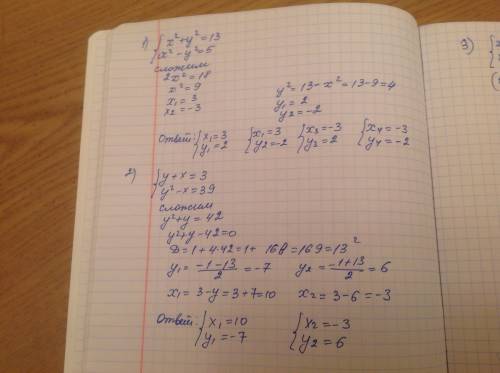 1) { x²+y²=13
x²-y²=5
сложим
2x²=18
x²=9
x₁=3
x₂=-3
y²=13-x²=13-9=4
y₁=2
y₂=-2
Ответ: { x₁=3 { x₁=3 { x₃=-3 { x₄=-3
y₁=2 y₂=-2 y₃=2 y₄=-2
2) { y+x=3
y²-x=39
сложим
y²+y=42
y²+y-42=0
D=1+4·42=1+168=169=13²
y₁=(-1-13)/2=-7 y₂=(-1+13)/2=6
x₁=3-y=3+7=10 x₂=3-6=-3
Ответ: { x₁=10 { x₂=-3
y₁=-7 y₂=6
3) {